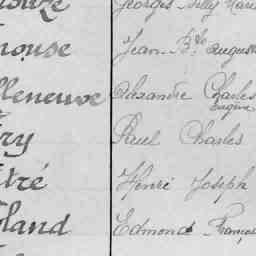 Georges
nouse Jean Bte Auguste
lleneuve Alexandre Charles
Eugène
ry Paul Charles
itré Henri Joseph
land Edmond François